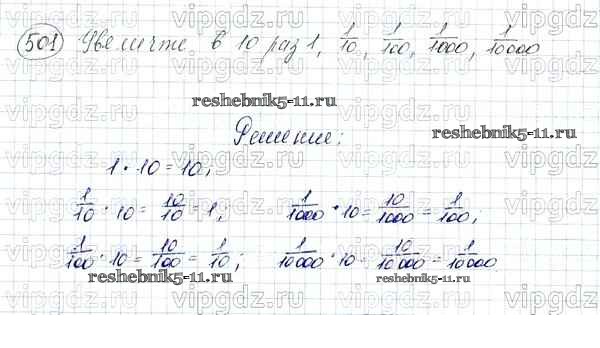 501 Увеличте в 10 раз 1, 1/10, 1/100, 1/1000, 1/10000
reshebnik5-11.ru
Решение:
reshebnik5-11.ru
1 · 10 = 10;
1/10 · 10 = 10/10 = 1; 1/1000 · 10 = 10/1000 = 1/100;
1/100 · 10 = 10/100 = 1/10; 1/10000 · 10 = 10/10000 = 1/10000.
reshebnik5-11.ru
vipgdz.com